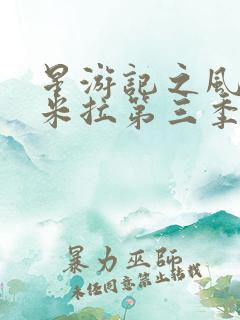 星游记之风
米拉第三季
暴力巫师
未经同意禁止转载